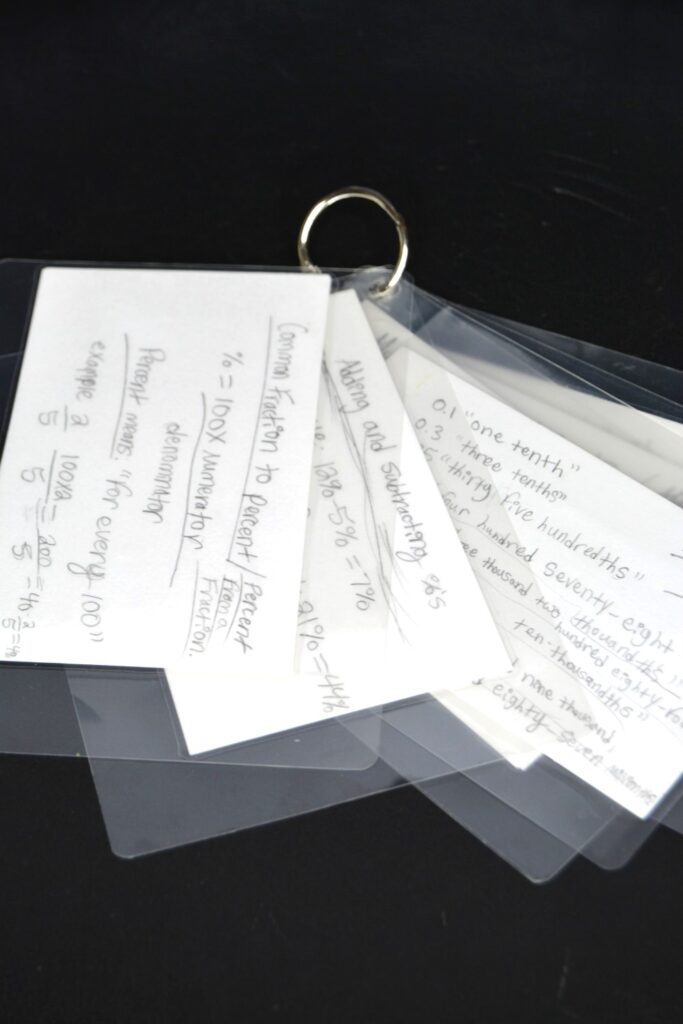 Common Fraction to percent / Percent
From a
Fraction.
% = 100x numerator
denominator
Percent means: "for every 100"
example 2 100x2 = 200 = 40 2
5 5 5 5 = 40
Adding and subtracting %s
12% - 5% = 7%
21% = 44%
0.1 "one tenth"
0.3 "three tenths"
5 "thirty five hundredths"
four hundred seventy-eight
thousandths"
thousand two hundred eighty-four
ten-thousandths"
nine thousand
eighty-seven millionths